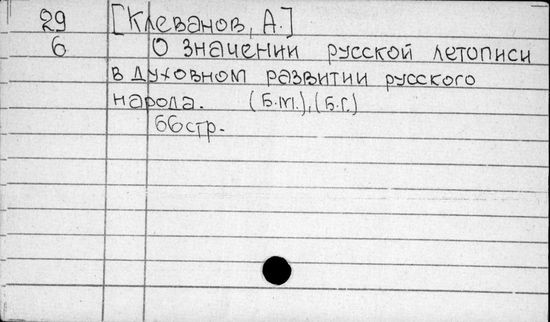 29 [Клеванов, А.]
6 О значении русской летописи
в духовном развитии русского
народа. (Б.м.), (Б.г.)
66 стр.